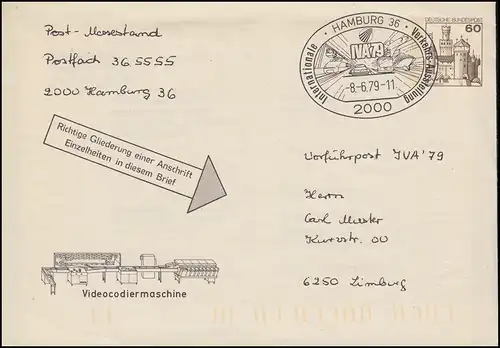 Post-Messestand
Postfach 36 55 55
2000 Hamburg 36
HAMBURG 36
Internationale Verkehrs-Ausstellung
IVA79
-8.-6.79-11
2000
DEUTSCHE BUNDESPOST
60
Richtige Gliederung einer Anschrift
Einzelheiten in diesem Brief
Vorführpost IVA '79
Herrn
Carl Muster
Kurzstr. 00
6250 Limburg
Videocodiermaschine